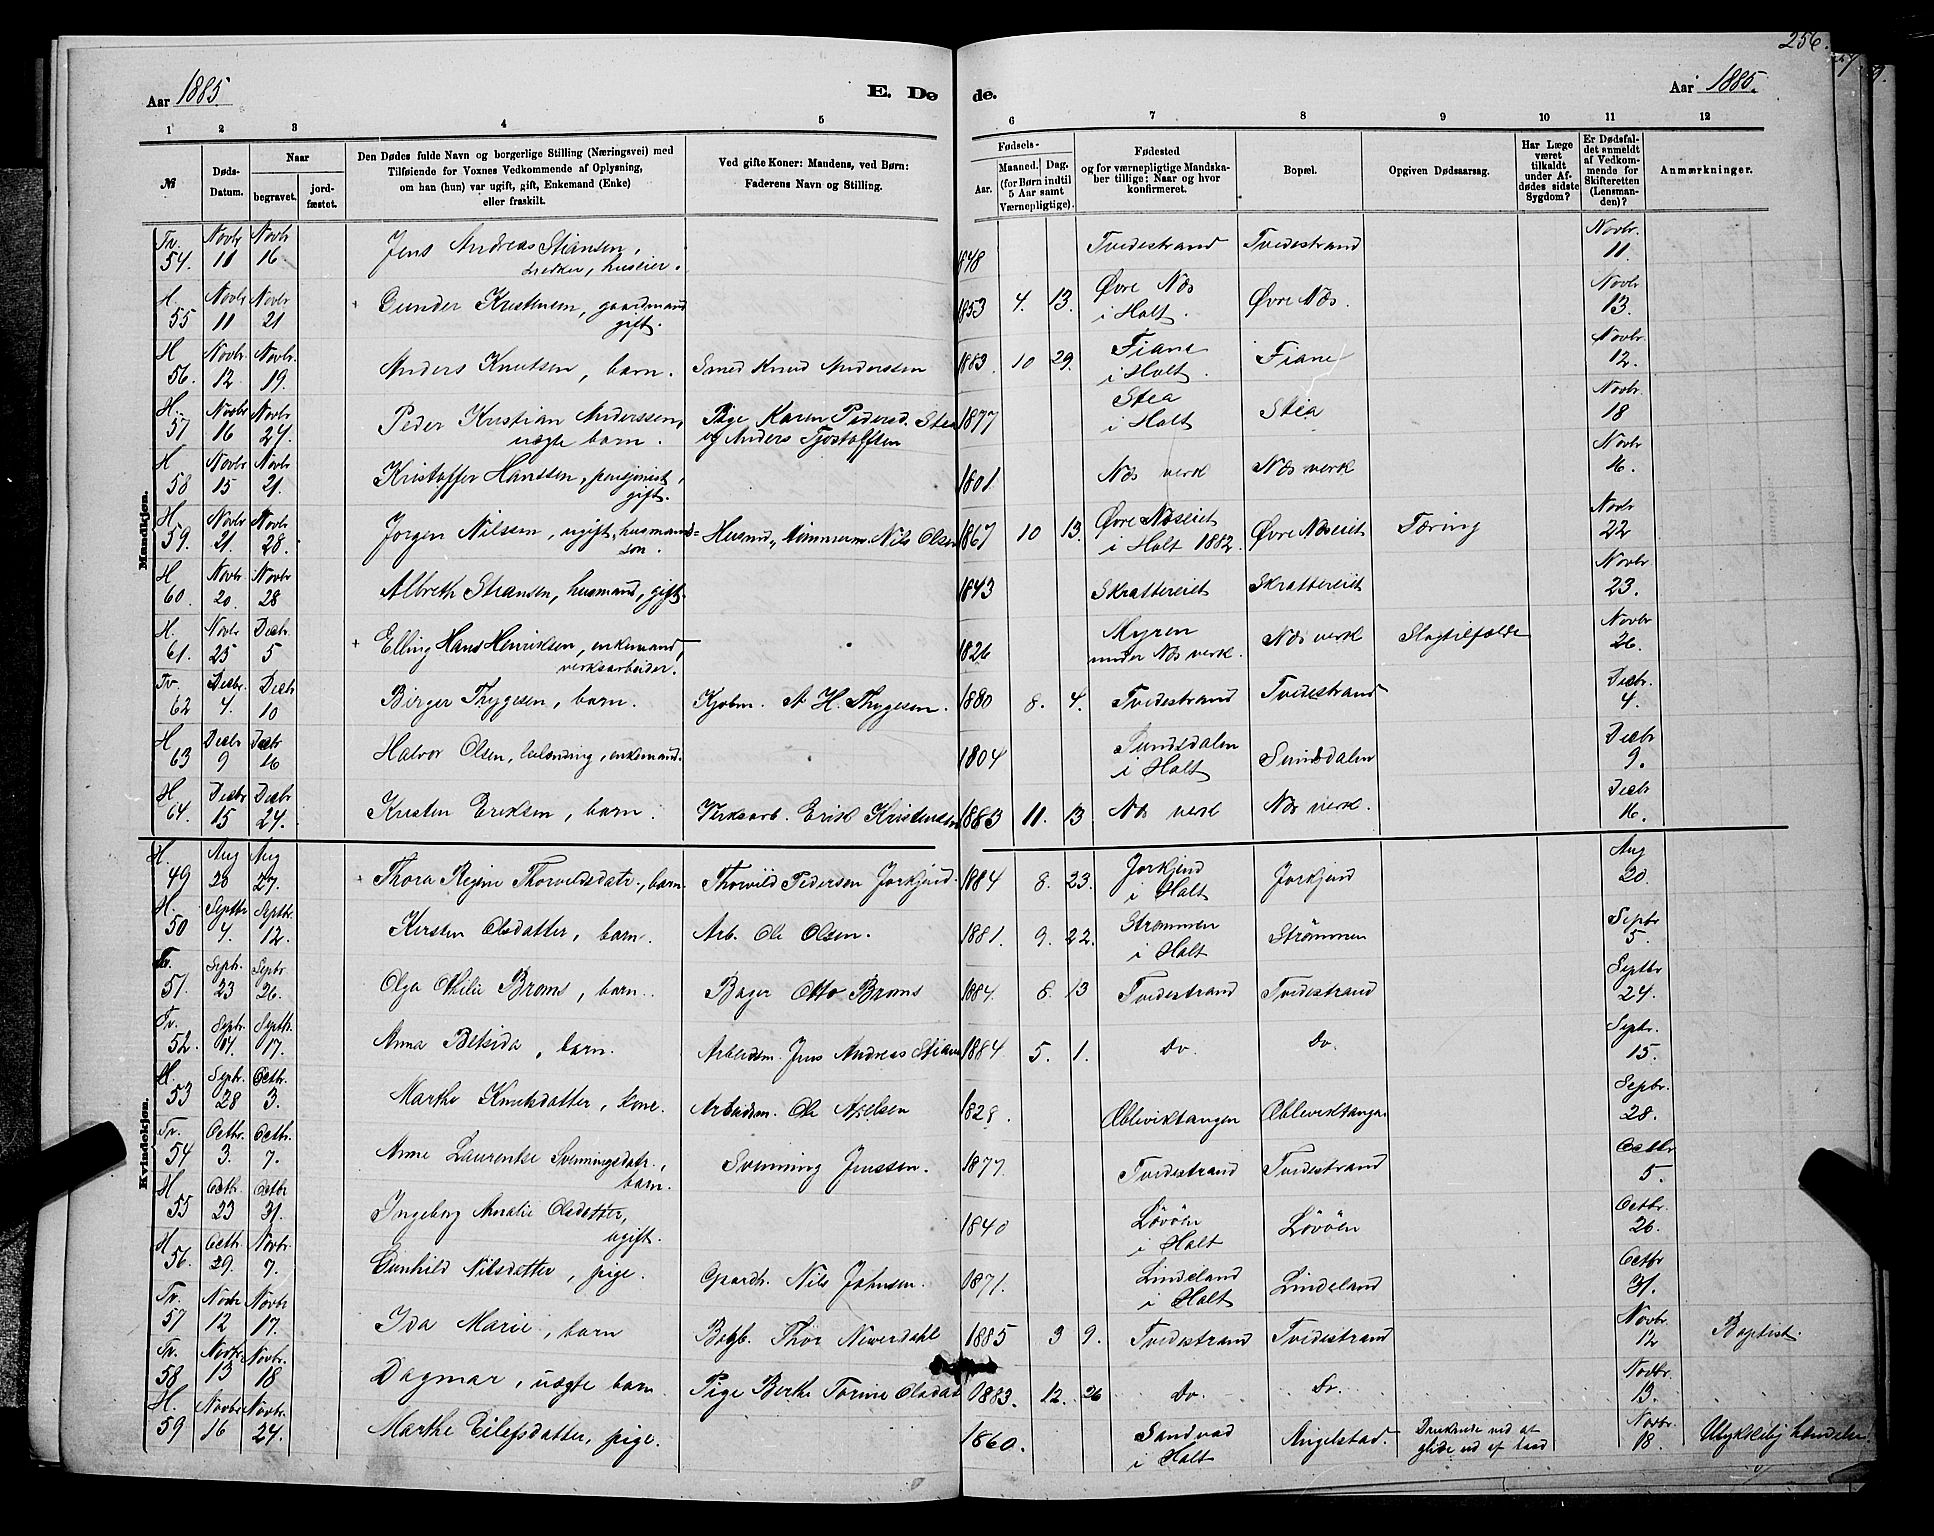 256.
Aar 1885. E. Dø de. Aar 1885.
1 2 3 4 5 6 7 8 9 10 11 12
№
Døds-Datum.
Naar
begravet.
jordfæstet.
Den Dødes fulde Navn og borgerlige Stilling (Næringsvei) med
Tilføiende for Voxnes Vedkommende af Oplysning,
om han (hun) var ugift, gift, Enkemand (Enke)
eller fraskilt.
Ved gifte Koner: Mandens, ved Børn:
Faderens Navn og Stilling.
Fødsels-
Aar.
Maaned. Dag.
(for Børn indtil
5 Aar samt
Værnepligtige).
Fødested
og for værnepligtige Mandska-
ber tillige: Naar og hvor
konfirmeret.
Bopæl.
Opgiven Dødsaarsag.
Har Læge
været
tilkaldt
under Af-
dødes sidste
Sygdom?
Er Dødsfal-
det anmeldt
af Vedkom-
mende for
Skifteretten
(Lensman-
den)?
Anmærkninger.
Mandkjøn.
Tv. 54. Novbr 11 Novbr 16 Jens Andreas Stiansen, huseier. 1848 Tvedestrand Tvedestrand Novbr. 11.
H. 55 Novbr 11 Novbr 21 + Gunder Kristensen, gaardmand gift. 1853 4. 13. Øvre Næs i Holt. Øvre Næs. Novbr 13.
H 56. Novbr. 12. Novbr. 19. Anders Knutsen, barn. Smed Knud Anderssen 1883. 10 29. Fiane i Holt. Fiane Novbr. 12.
H. 57 Novbr 16 Novbr 24. Peder Kristian Anderssen, uægte barn. Pige Karen Pedersd. Stea og Anders Tjostolfsen 1877 Stea i Holt Stea Novbr 18
H 58 Novbr. 15 Novbr. 21. Kristoffer Hanssen, pensjonist, gift. 1801. Næs verk Næs verk Novbr 16.
H 59. Novbr 21. Novbr 28. Jørgen Nilssen, ugift, husmands-søn. Husmd., tømmerm. Nils Olsen 1867 10 13. Øvre Næseiet i Holt 1882. Øvre Næseiet Tæring Novbr 22
H 60. Novbr 20. Novbr 28 Albreth Stiansen, husmand, gift. 1843 Skrattereiet Skrattereiet Novbr. 23.
H. 61. Novbr 25 Decbr. 5 + Elling Hans Henriksen, enkemand, verksarbeider. 1826 Myren under Næs verk. Næs verk Slagtilfælde Novbr 26.
Tv. 62 Decbr. 4. Decbr 10 Birger Thygesen, barn. Kjøbm. A H. Thygesen. 1880 8. 4. Tvedestrand Tvedestrand Decbr. 4.
H 63 Decbr 9 Decbr 16 Halvor Olsen, enkemand. 1804 Sundsdalen i Holt Sundsdalen Decbr 9.
H 64. Decbr 15 Decbr 24. Kristen Eriksen, barn. Verksarb. Erik Kristensen 1883 11. 13 Næs verk Næs verk. Decbr 16.
Kvindekjøn.
H. 49 Aug 20 Aug 27. Thora Regine Thorvildsdatr., barn. Thorvild Pedersen Jorkjend. 1884 8. 23. Jorkjend i Holt Jorkjend Aug 20.
H. 50 Septbr 4. Septbr. 12. Kersten Olsdatter, barn. Arb. Ole Olsen. 1881. 9. 22. Strømmen i Holt Strømmen Sepbr 5.
Tv. 51. Sepbr. 23 Sepbr 26. Olga Othilie Broms, barn. Bager Otto Broms 1884. 8. 13 Tvedestrand Tvedestrand Septbr 24.
Tv. 52. Sepbr. 14. Septbr. 17. Anna Betsida, barn. Arbeidsm. Jens Andreas Stians 1884 5. 1. Do. Do. Sepbr. 15.
H. 53 Sepbr. 28 Octbr. 3. Marthe Knutsdatter, kone. Arbeidsm. Ole Axelsen 1828. Øbleviktangen Øbleviktangen Sepbr. 28.
Tv. 54 Octbr. 3. Octbr. 7. Anne Laurentse Svenningsdatr., barn. Svenning Jenssen. 1877. Tvedestrand Tvedestrand Octbr 5.
H 55 Octbr. 23 Octbr 31. Ingeborg Amalie Olsdatter, ugift. 1840 Løvøen i Holt Løvøen Octbr. 26.
H 56. Octbr. 29. Novbr. 7. Gunhild Nilsdatter, pige. Gaardb. Nils Johnsen. 1871. Lindeland i Holt Lindeland Octbr 31.
Tv. 57 Novbr 12 Novbr 17. Ida Marie, barn Thor Neverdahl 1885 3 9. Tvedestrand Tvedestrand Novbr. 12 Baptist.
Tv. 58. Novbr. 13 Novbr. 18 Dagmar, uægte barn. Pige Berthe Torine Olsdat 1883. 12. 26 Do. Do. Novbr. 13.
H. 59 Novbr. 16 Novbr. 24. Marthe Eilefsdatter, pige. 1860. Sandvad i Holt Angelstad. Druknede ved at glide ud af land Novbr. 18. Ulykkelig hændelse